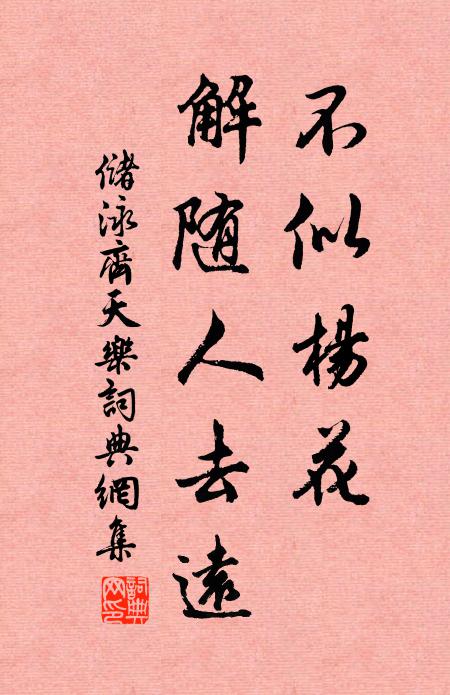 不似楊花
解随人去遠
儲泳齊天樂詞典網集
詞典网印